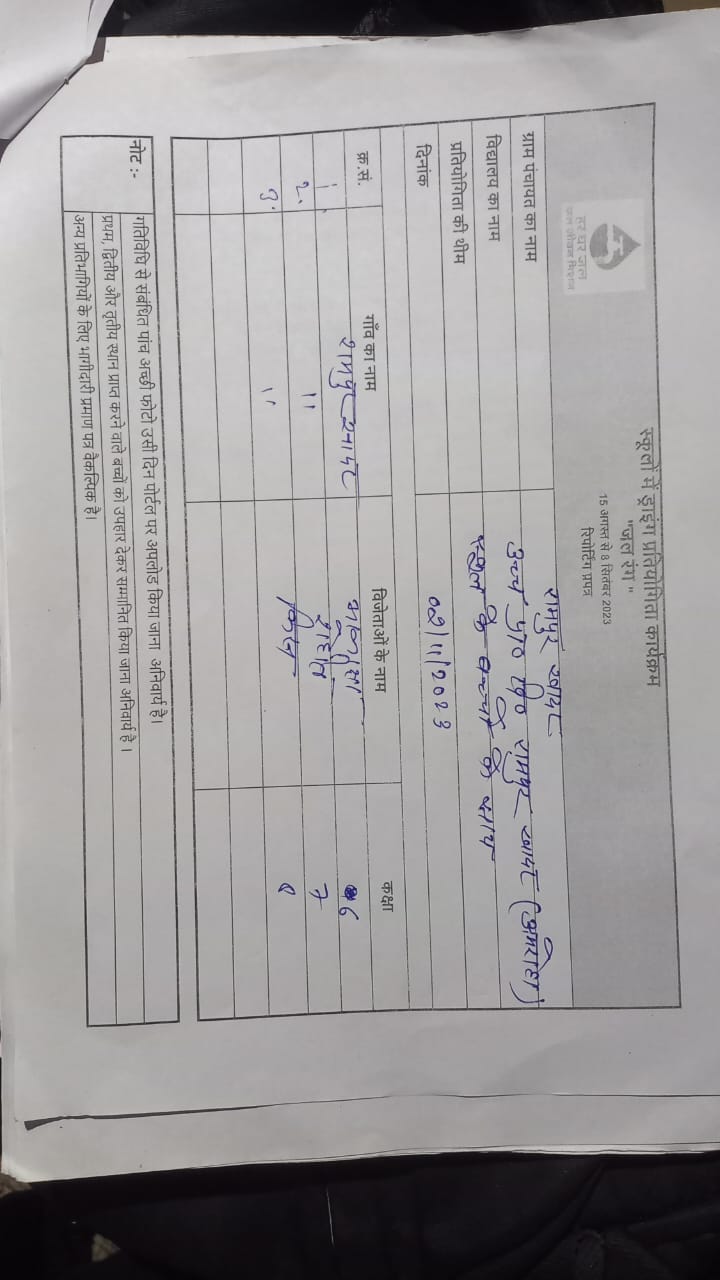 हर घर जल
जल जीवन मिशन
स्कूलों में ड्राइंग प्रतियोगिता कार्यक्रम
"जल रंग"
15 अगस्त से 8 सितंबर 2023
रिपोर्टिंग प्रपत्र
ग्राम पंचायत का नाम रामपुर खादर
विद्यालय का नाम उच्च प्रा० वि० रामपुर खादर (अमरोहा)
प्रतियोगिता की थीम स्कूल के बच्चों के साथ
दिनांक 02/11/2023
क्र.सं. गाँव का नाम विजेताओं के नाम कक्षा
1. रामपुर खादर 6
2. 11 7
3. 11 8
नोट :- गतिविधि से संबंधित पांच अच्छी फोटो उसी दिन पोर्टल पर अपलोड किया जाना अनिवार्य है।
प्रथम, द्वितीय और तृतीय स्थान प्राप्त करने वाले बच्चों को उपहार देकर सम्मानित किया जाना अनिवार्य है ।
अन्य प्रतिभागियों के लिए भागीदारी प्रमाण पत्र वैकल्पिक है।